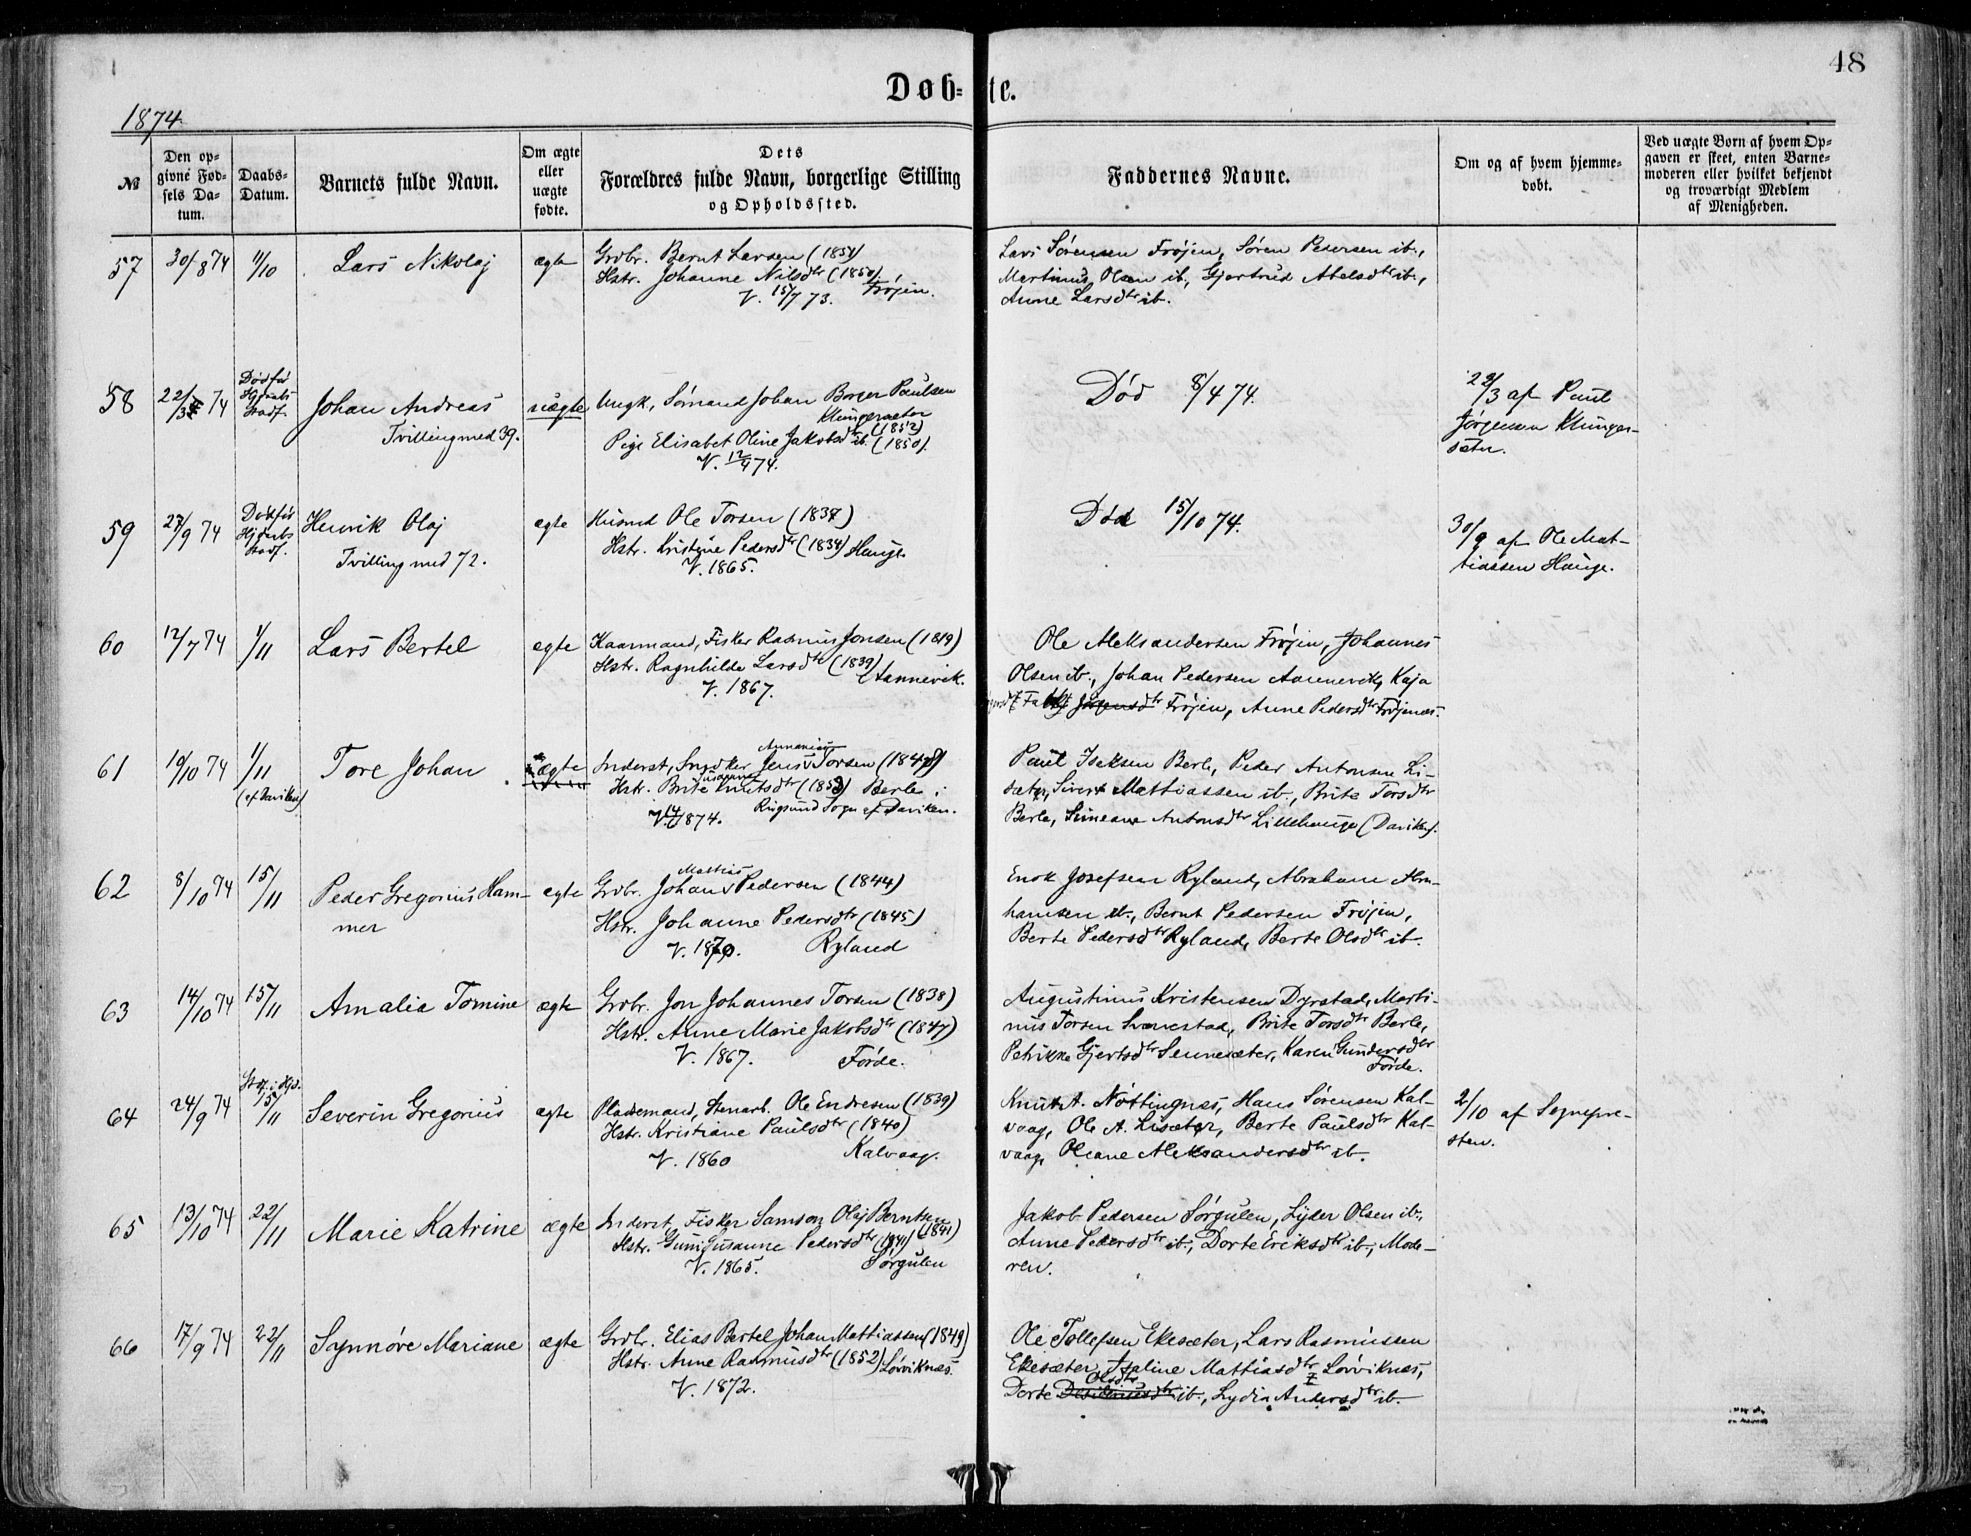 48
Døb-
te.
1874
№
Den op-
givne Fød-
sels Da-
tum.
Daabs-
Datum.
Barnets fulde Navn.
Om ægte
eller
uægte
fødte.
Dets
Forældres fulde Navn, borgerlige Stilling
og Opholdssted.
Faddernes Navne.
Om og af hvem hjemme-
døbt.
Ved uægte Børn af hvem Op-
gaven er skeet, enten Barne-
moderen eller hvilket bekjendt
og troværdigt Medlem
af Menigheden.
57 30/8 74 11/10 Lars Nikolaj ægte
Grdbr. Bernt Larsen (1851)
Hstr. Johanne Nilsdtr (1850)
V. 15/7 73. Frøjen.
Lars Sørensen Frøjen, Søren Pedersen ib.,
Martinus Olsen ib., Gjertrud Abelsdtr ib.,
Anne Larsdtr ib.
58 22/3 74
Død før
Hjdaabs
Stadf.
Johan Andreas
Tvilling med 39.
uægte
Ungk., Sømand Johan Borger Paulsen
Klungersæter (1852)
Pige Elisabet Oline Jakobsdtr ib. (1850).
V. 12/4 74.
Død 8/4 74.
22/3 af Paul
Jørgensen Klunger-
sæter.
59 27/9 74
Død før
Hjdaabs
Stadf.
Henrik Olaj
Tvilling med 72.
ægte
Husmd Ole Torsen (1837)
Hstr. Kristine Pedersdtr (1834) Hauge.
V. 1865.
Død 15/10 74.
30/9 af Ole Mat-
tiassen Hauge.
60 12/7 74 1/11 Lars Bertel ægte
Kaarmand, Fisker Rasmus Jonsen (1819)
Hstr. Ragnhilde Larsdtr (1839)
Aannevik.
V. 1867.
Ole Aleksandersen Frøjen, Johannes
Olsen ib., Johan Pedersen Aannevik, Kaja
Jørgensdtr Frøjen, Anne Pedersdtr Frøjenæs.
61 19/10 74 1/11
(ef. Daviken)
Tore Johan
ægte
Ananias
Inderst, Snedker Jens Torsen (1848)
Susanne
Hstr. Brite Knutsdtr (1852) Berle i
Rugsund Sogn ef. Daviken.
V. 1874.
Paul Iseksen Berle, Peder Antonsen Li-
sæter, Sivert Mattiassen ib., Brite Torsdtr
Berle, Simeane Antonsdtr Lillehauge (Daviken).
62 8/10 74 15/11 Peder Gregorius Ham-
mer
ægte
Mattias
Grdbr. Johan Pedersen (1844)
Hstr. Johanne Pedersdtr (1845)
V. 1870. Ryland
Enok Josefsen Ryland, Abraham Abra-
hamsen ib., Bernt Pedersen Frøjen,
Berte Pedersdtr Ryland, Berte Olsdtr ib.
63 14/10 74 15/11 Amalia Tomine ægte
Grdbr. Jon Johannes Torsen (1838)
Hstr. Anne Marie Jakobsdtr (1847)
V. 1867. Førde.
Augustinus Kristensen Dyrstad, Marti-
nus Torsen Svanestad, Brite Torsdtr Berle,
Petrikke Gjertsdtr Sennesæter, Karen Gundersdtr
Førde.
64 24/9 74
Stdf. i Hjd.
15/11
Severin Gregorius ægte
Pladsemand, Stenarb. Ole Endresen (1839)
Hstr. Kristiane Paulsdtr (1840)
V. 1860 Kalvaag.
Knut A. Nøttingnæs, Hans Sørensen Kal-
vaag, Ole A. Lisæter, Berte Paulsdtr Kal-
vaag, Oliane Aleksandersdtr ib.
2/10 af Sognepre-
sten.
65 13/10 74 22/11 Marie Katrine ægte
Inderst, Fisker Samson Olaj Berntsen
(1841)
Hstr. Guni Susanne Pedersdtr (1841)
V. 1865. Sørgulen
Jakob Pedersen Sørgulen, Lyder Olsen ib.,
Anne Pedersdtr ib., Dorte Eriksdtr ib., Mode-
ren.
66 17/9 74 22/11 Synnøve Mariane ægte
Grdbr. Elias Bertel Johan Mattiassen (1849)
Hstr. Anne Rasmusdtr (1852) Løviknæs.
V. 1872.
Ole Tollefsen Ekesæter, Lars Rasmussen
Ekesæter, Italine Mattiasdtr Løviknæs,
Olsdtr
Dorte ib., Lydia Andersdtr ib.